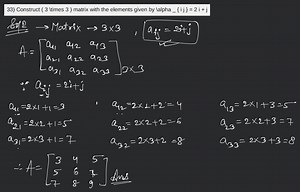 33) Construct ( 3 \times 3 ) matrix with the elements given by \alpha _ { i j } = 2 i + j
Solⁿ → Matrix → 3×3 , aij = 2i+j
a11 a12 a13
A = a21 a22 a23
a31 a32 a33 3×3
∵ aij = 2i+j
a11 = 2×1+1 = 3 a12 = 2×2+2 = 4 a13 = 2×1+3 = 5
a21 = 2×2+1 = 5 a22 = 2×2+2 = 6 a23 = 2×2+3 = 7
a31 = 2×3+1 = 7 a32 = 2×3+2 = 8 a33 = 2×3+3 = 8
3 4 5
∴ A = 5 6 7 Ans
7 8 9